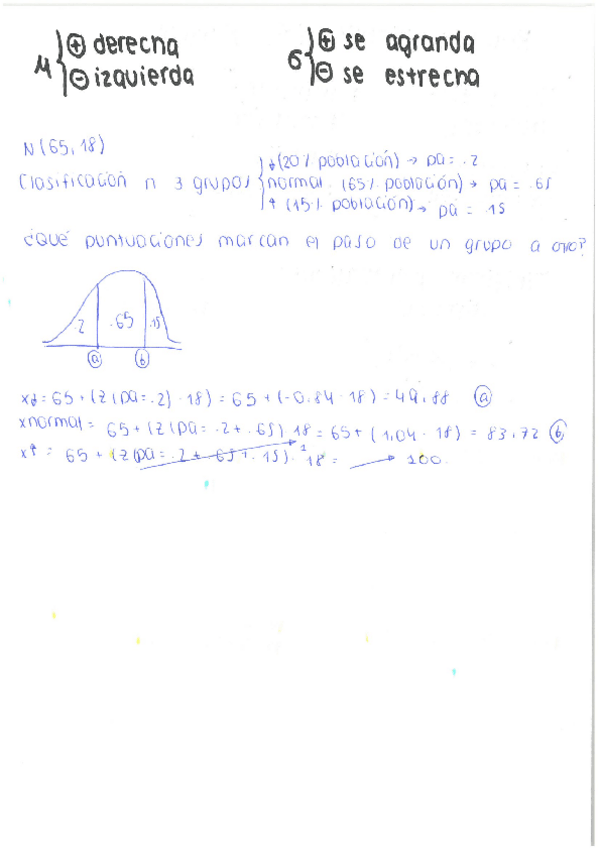 μ { ⊕ derecha
⊖ izquierda
σ { ⊕ se agranda
⊖ se estrecha
N(65, 18)
Clasificación n 3 grupos { ↓ (20% población) → pa = .2
normal (65% población) → pa = .65
↑ (15% población) → pa = .15
¿Qué puntuaciones marcan el paso de un grupo a otro?
.2 .65 .15
a b
x↓ = 65 + (z(pa = .2) · 18) = 65 + (-0.84 · 18) = 49.88 ⓐ
xnormal = 65 + (z(pa = .2 + .65) 18 = 65 + (1,04 · 18) = 83.72 ⓑ
x↑ = 65 + (z(pa = .2 + .65 + .15) · 18 = → 100.